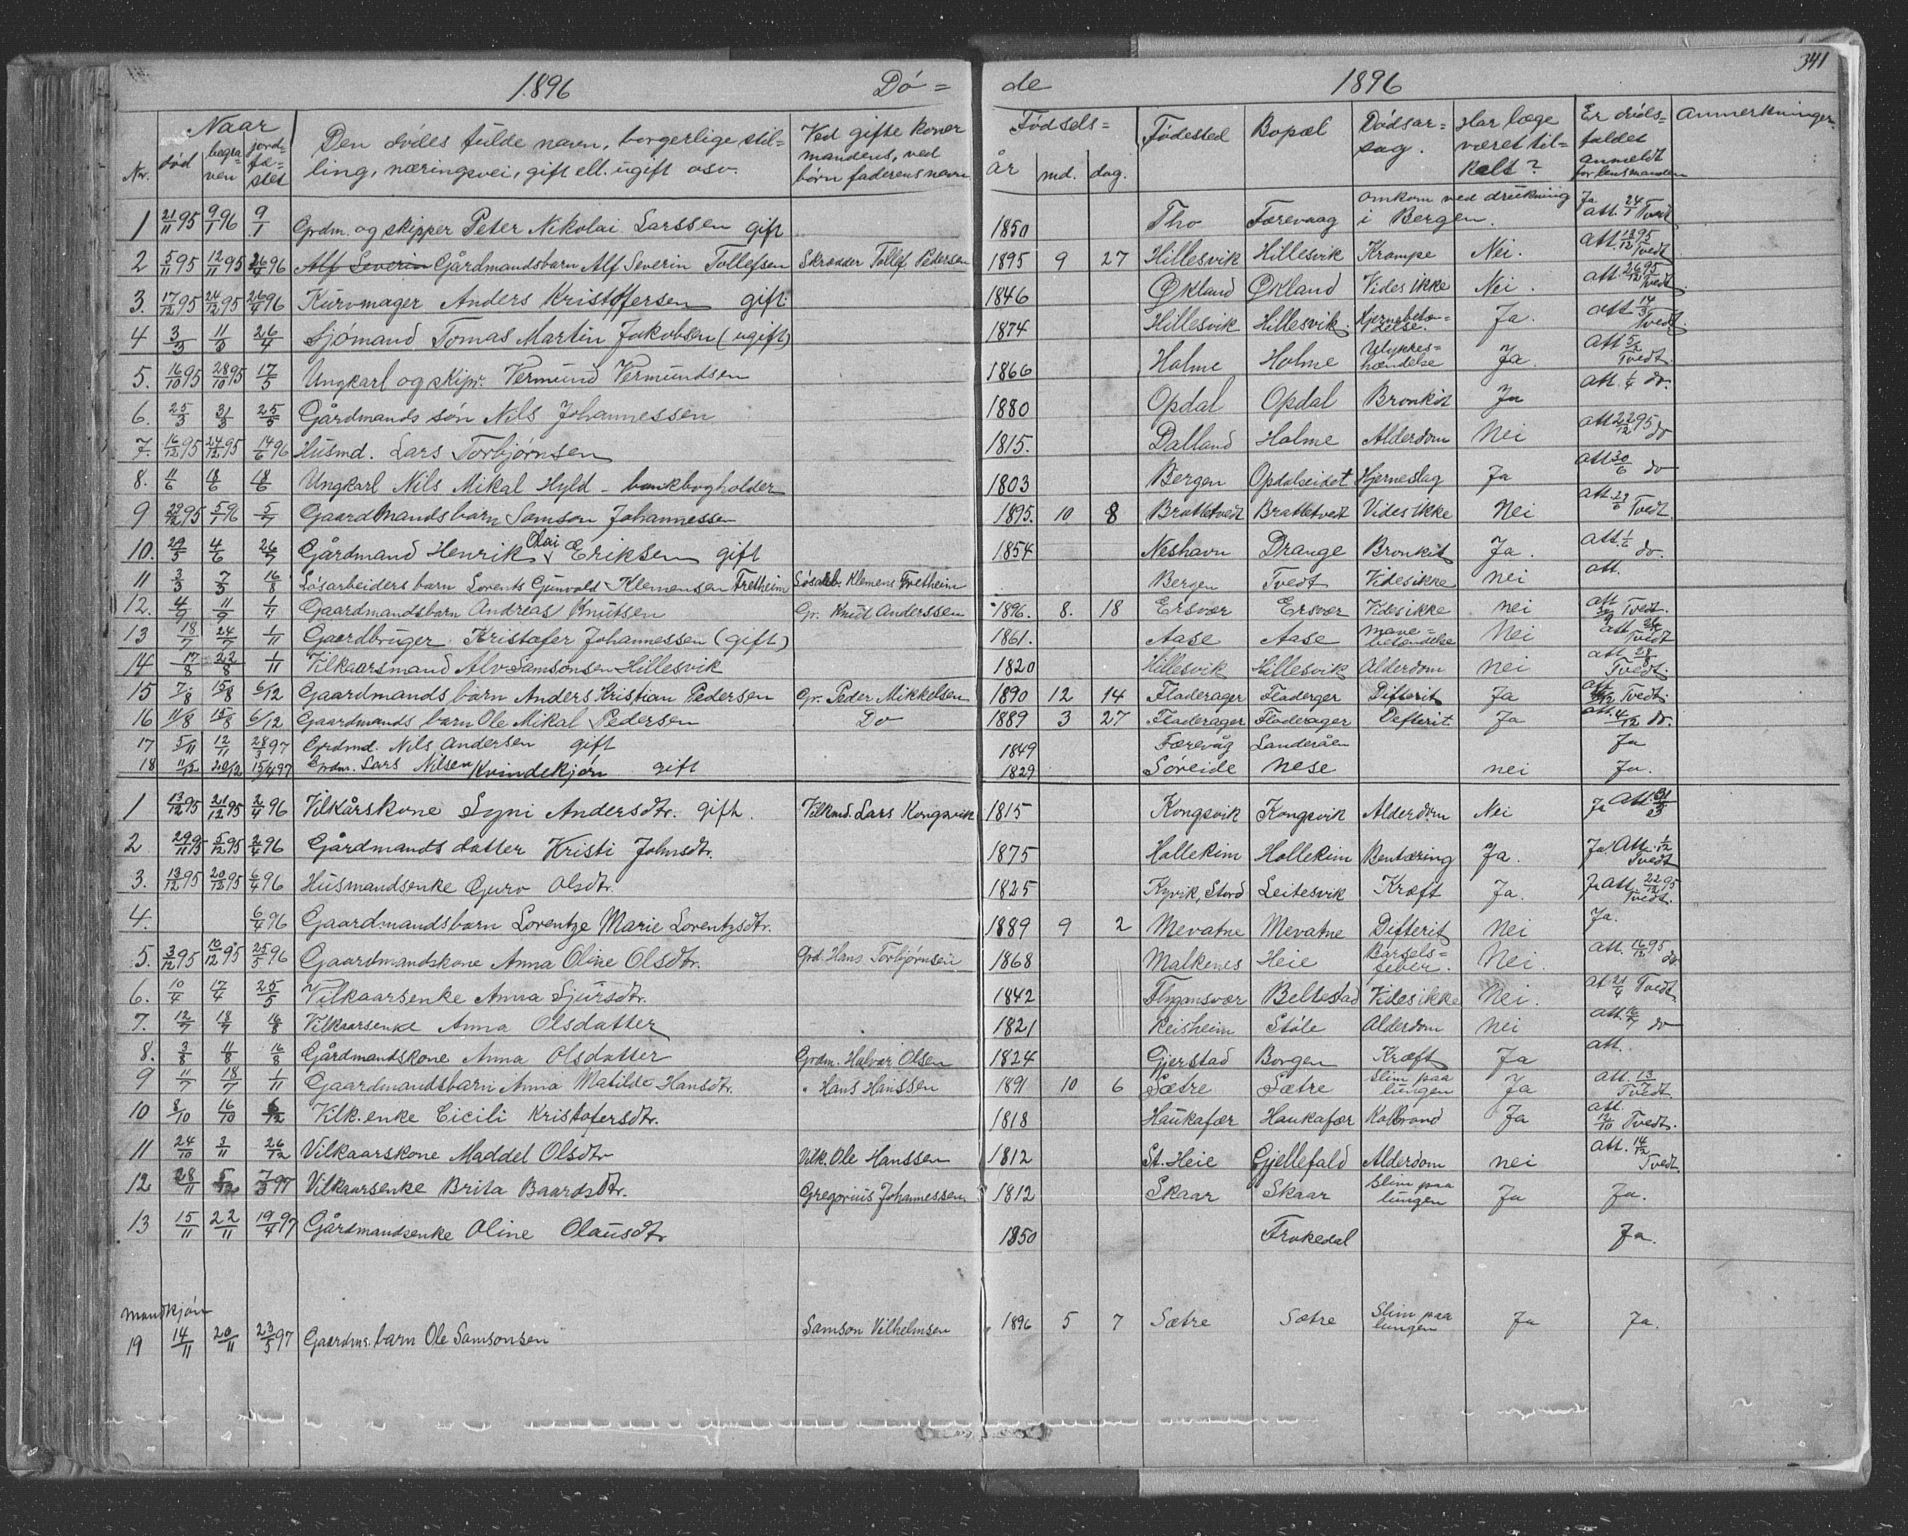 341
1896 Dø= de 1896
Nr. Naar død begraven jordfæstet Den dødes fulde navn, borgerlige stilling, næringsvei, gift ell. ugift osv. Ved gifte koner mandens, ved børn faderens navn Fødsels= år md. dag. Fødested Bopæl Dødsarsag. Har læge været tilkalt? Er dødsfaldet anmeldt for lensmanden Anmerkninger
1 21/11 95 9/1 96 9/1 Grdm. og skipper Peter Nikolai Larssen gift 1850 Tho Færevaag omkom ved drukning i Bergen. Ja att. 24/1 Tvedt
2 5/11 95 12/11 95 26/4 96 Alf Severin Gårdmandsbarn Alf Severin Tollefsen Skrædder Tollef Pedersen 1895 9 27 Hillesvik Hillesvik Krampe Nei. att. 18/12 95 Tvedt
3. 17/12 95 24/12 95 26/4 96 Kurvmager Anders Kristoffersen gift. 1846 Økland Økland Vides ikke Nei. att. 26/12 95 Tvedt
4 3/3 11/3 26/4 Sjømand Tomas Martin Jakobsen (ugift) 1874 Hillesvik Hillesvik. Hjernebetændelse. Ja. att 14/3 Tvedt.
5. 16/10 95 28/10 95 17/5 Ungkarl og skipr. Vermund Vermundsen 1866 Holme Holme Ulykkeshændelse Ja. Att 5/2 Tvedt.
6. 25/3 31/3 25/5 Gårdmands søn Nils Johannessen 1880 Opdal Opdal Bronkit Ja att. 1/4 do.
7. 16/12 95 24/12 95 14/6 96 Husmd. Lars Torbjørnsen 1815. Dalland Holme Alderdom Nei att 22/12 95 do
8. 11/6 18/6 18/6 Ungkarl Nils Mikal Hyld - bankbogholder 1803 Bergen Opdalseidet Hjerneslag Ja att 30/6 do
9 29/12 95 5/1 96 5/7 Gaardmandsbarn Samson Johannessen 1895. 10 8 Brattetvedt Brattetvedt Vides ikke Nei att. 29/6 Tvedt.
10. 29/5 4/6 26/7 Gårdmand Henrik Olai Eriksen gift 1854 Neshavn Drange Bronkit Ja. att. 1/6 do.
11 3/3 7/3 16/8 Løsarbeiders barn Lorents Gunvald Klemensen Tretheim Løsarb. Klemens Tretheim Bergen Tvedt Vides ikke nei att.
12. 4/9 11/9 1/11 Gaardmandsbarn Andreas Knutsen Gr. Knut Anderssen 1896. 8. 18 Ersvær Ersvær Vides ikke nei att Tvedt.
13 18/7 24/7 1/11 Gaardbruger. Kristofer Johannessen (gift) 1861. Aase Aase mavebetændelse Nei att Tvedt
14 17/8 22/8 1/11 Vilkaarsmand Alv Samsonsen Hillesvik 1820 Hillesvik Hillesvik Alderdom nei att. 28/8 Tvedt.
15 7/8 15/8 6/12 Gaardmands barn Anders Kristian Pedersen Gr. Peder Mikkelsen 1890 12 14 Fladerager Fladerger Difterit Ja att Tvedt.
16 11/8 15/8 6/12 Gaardmands barn Ole Mikal Pedersen Do 1889 3 27 Fladerager Fladerager Defterit Ja att. 4/12 do.
17 5/11 12/11 28/3 97 Grdmd. Nils Andersen gift 1849 Færevåg Landeråen Ja
18 11/12 20/12 15/4 97 Grdm. Lars Nilsen gift 1829 Søreide Nese nei Ja.
Kvindekjøn
1 13/12 95 21/12 95 2/4 96 Vilkårskone Sygni Andersdtr. gift. Vilkmd. Lars Kongsvik 1815 Kongsvik Kongsvik Alderdom Nei Ja Att 31/3
2 29/11 95 5/12 95 2/4 96 Gårdmands datter Kristi Johnsdtr. 1875 Hollekim Hollekim Bentæring Ja. Ja. Att. 1/12 Tvedt
3. 13/12 95 20/12 95 6/4 96 Husmandsenke Guro Olsdtr. 1825 Kyvik, Stord Leitesvik Kræft Ja. Ja att. 22/12 95 Tvedt.
4. 6/4 96 Gaardmandsbarn Lorentze Marie Lorentzsdtr. 1889 9 2 Mevatne Mevatne Difterit Nei Ja.
5. 3/12 95 10/12 95 25/5 96 Gaardmandskone Anna Oline Olsdtr. Grd. Hans Torbjørnsen 1868 Malkenes Heie Barselsfeber. Nei. att. 16/12 95 do
6. 10/4 17/4 25/5 Vilkaarsenke Anna Sjursdtr. 1842 Flygansvær Beltestad Vides ikke Nei. at 21/4 Tvedt.
7. 12/7 18/7 16/8 Vilkaarsenke Anna Olsdatter 1821 Reisheim Støle Alderdom nei att. 16/7 do
8. 3/8 11/8 16/8 Gårdmandskone Anna Olsdatter Grdm. Halvar Olsen 1824 Gjerstad Borgen Kræft Ja att.
9 11/7 18/7 1/11 Gaardmandsbarn Anna Matilde Hansdtr. " Hans Hanssen 1891 10 6 Sætre Sætre Slim paa lungen Ja att. 13/7 Tvedt.
10 8/10 16/10 6/12 Vilk. enke Cicili Kristofersdtr. 1818 Haukafær Haukafær Kolbrand Ja att. 12/10 Tvedt.
11 24/10 3/11 26/12 Vilkaarskone Maddel Olsdtr Vilk. Ole Hanssen 1812 St. Heie Gjellefald Alderdom nei att. 14/12 Tvedt.
12 28/11 5/12 7/3 97 Vilkaarsenke Brita Baardsdtr. Gregorius Johannessen 1812 Skaar Skaar Slim paa lungen Ja Ja.
13 15/11 22/11 19/4 97 Gårdmandsenke Oline Olausdtr 1850 Frokedal Ja.
Mandkjøn
19 14/11 20/11 23/5 97 Gaardms. barn Ole Samsonsen Samson Vilhelmsen 1896 5 7 Sætre Sætre Slim paa lungen Ja Ja.